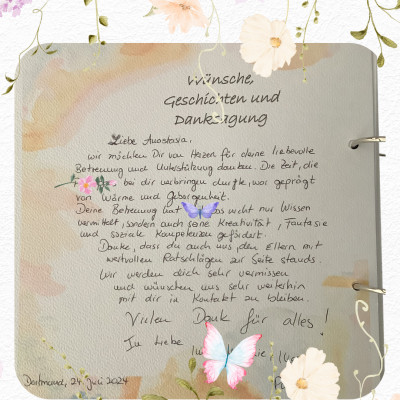 Wünsche,
Geschichten und
Danksagung
Liebe Anastasia,
wir möchten Dir von Herzen für deine liebevolle
Betreuung und Unterstützung danken. Die Zeit, die
bei dir verbringen durfte, war geprägt
von Wärme und Geborgenheit.
Deine Betreuung hat nicht nur Wissen
vermittelt, sondern auch seine Kreativität, Fantasie
und soziale Kompetenzen gefördert.
Danke, dass du auch uns, den Eltern mit
wertvollen Ratschlägen zur Seite stands.
Wir werden dich sehr vermissen
und wünschen uns sehr weiterhin
mit dir in Kontakt zu bleiben.
Vielen Dank für alles!
In Liebe
Dortmund, 24. Juli 2024